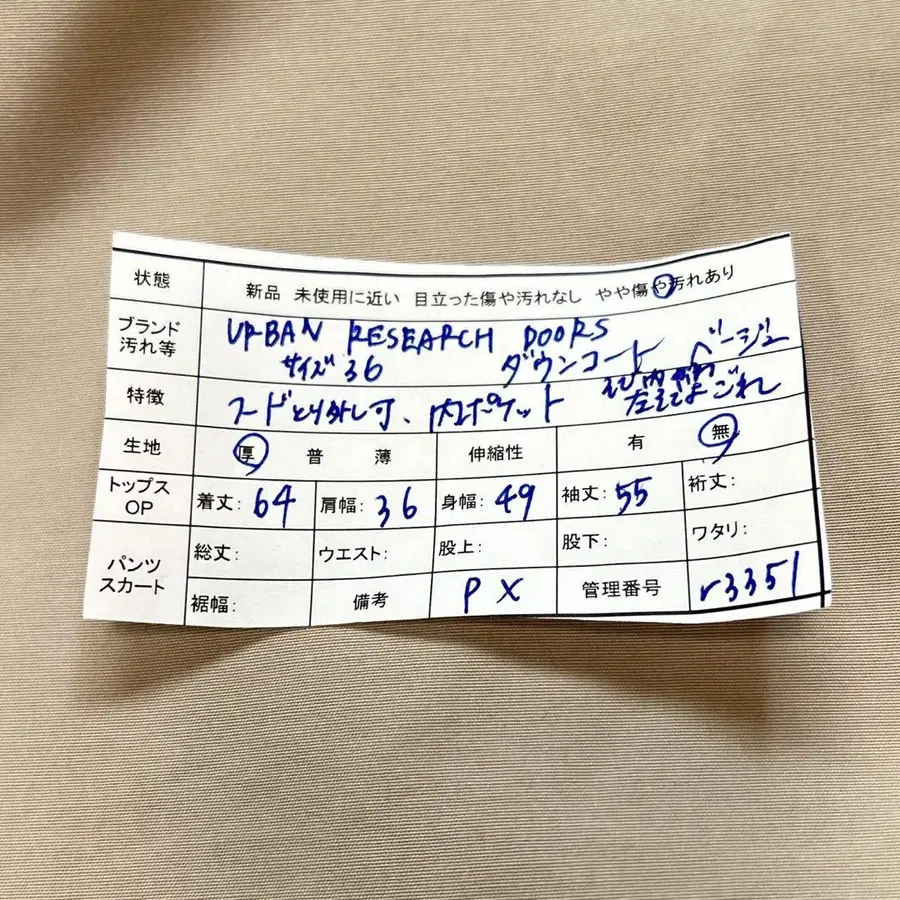 状態 新品 未使用に近い 目立った傷や汚れなし やや傷や汚れあり
ブランド 汚れ等 URBAN RESEARCH DOORS
サイズ36 ダウンコート ベージュ
特徴 フードとり外し可、内ポケット
ごれ
生地 厚 普 薄 伸縮性 有 無
トップス OP 着丈: 64 肩幅: 36 身幅: 49 袖丈: 55 裄丈:
パンツ スカート 総丈: ウエスト: 股上: 股下: ワタリ:
裾幅: 備考 P X 管理番号 r3351